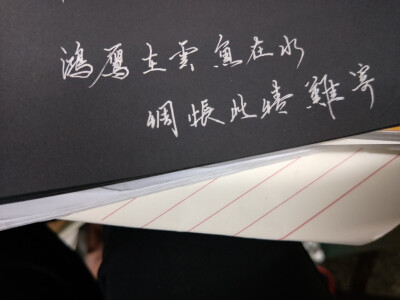 鴻鴈在雲魚在水
惆悵此情難寄